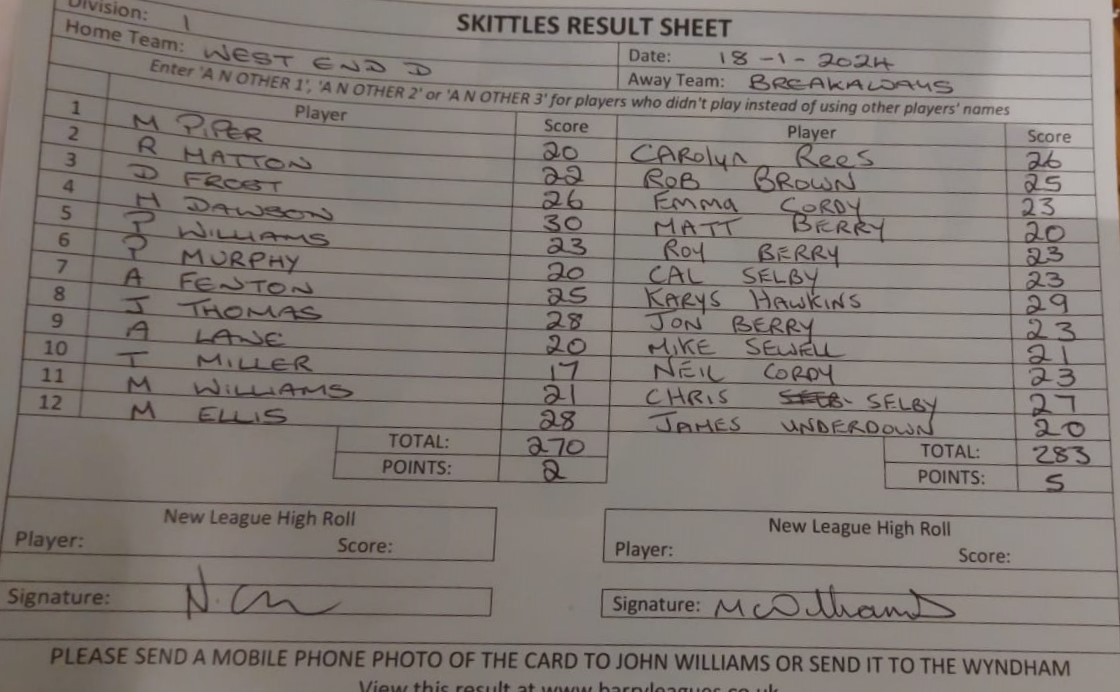 SKITTLES RESULT SHEET
Division: 1
Home Team: WEST END D Date: 18-1-2024
Away Team: BREAKAWAYS
Enter 'A N OTHER 1', 'A N OTHER 2' or 'A N OTHER 3' for players who didn't play instead of using other players' names
Player Score Player Score
1 M PIPER 20 CAROLYN REES 26
2 R HATTON 22 ROB BROWN 25
3 D FROST 26 EMMA CORDY 23
4 H DAWSON 30 MATT BERRY 20
5 P WILLIAMS 23 ROY BERRY 23
6 P MURPHY 20 CAL SELBY 23
7 A FENTON 25 KARYS HAWKINS 29
8 J THOMAS 28 JON BERRY 23
9 A LANE 20 MIKE SEWELL 21
10 T MILLER 17 NEIL CORDY 23
11 M WILLIAMS 21 CHRIS SELBY 27
12 M ELLIS 28 JAMES UNDERDOWN 20
TOTAL: 270 TOTAL: 283
POINTS: 2 POINTS: 5
New League High Roll New League High Roll
Player: Score: Player: Score:
Signature: Signature: M Williams
PLEASE SEND A MOBILE PHONE PHOTO OF THE CARD TO JOHN WILLIAMS OR SEND IT TO THE WYNDHAM
View this result at www.barryleagues.co.uk